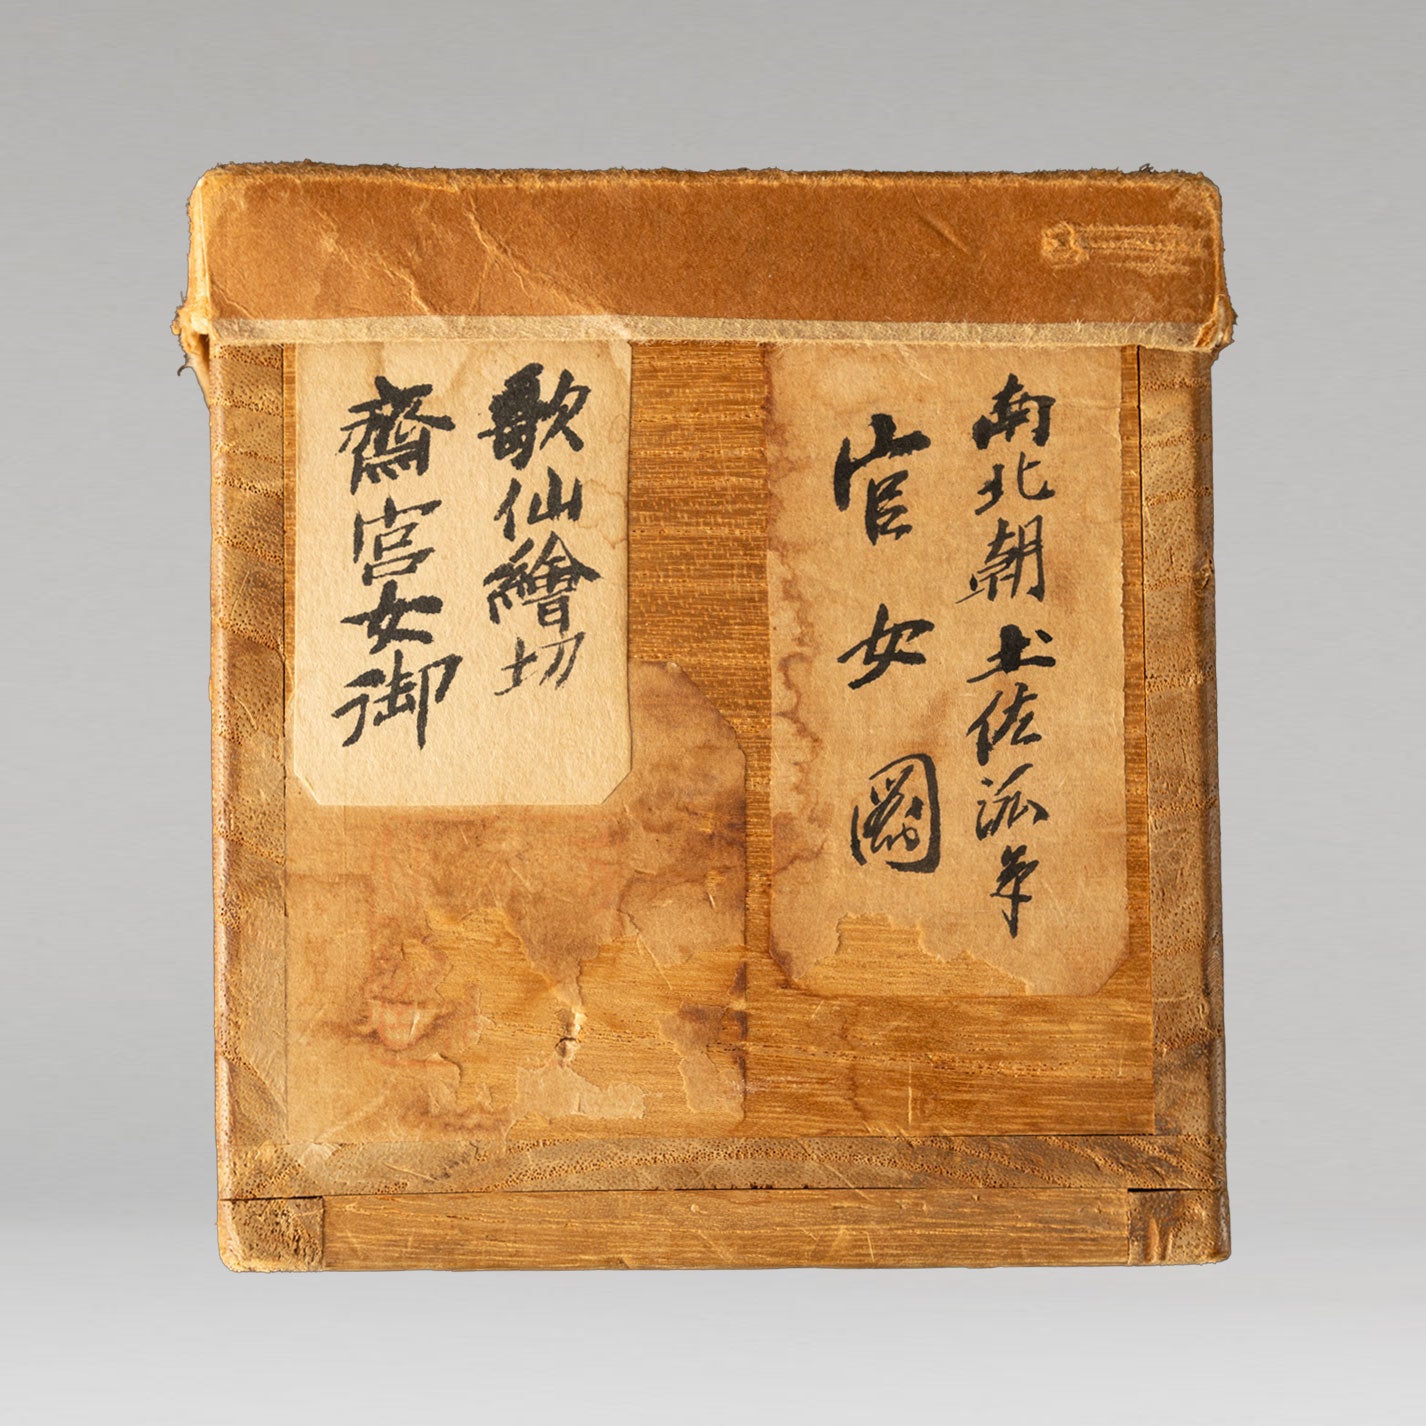 南北朝土佐派筆
官女圖
歌仙繪切
齋宮女御